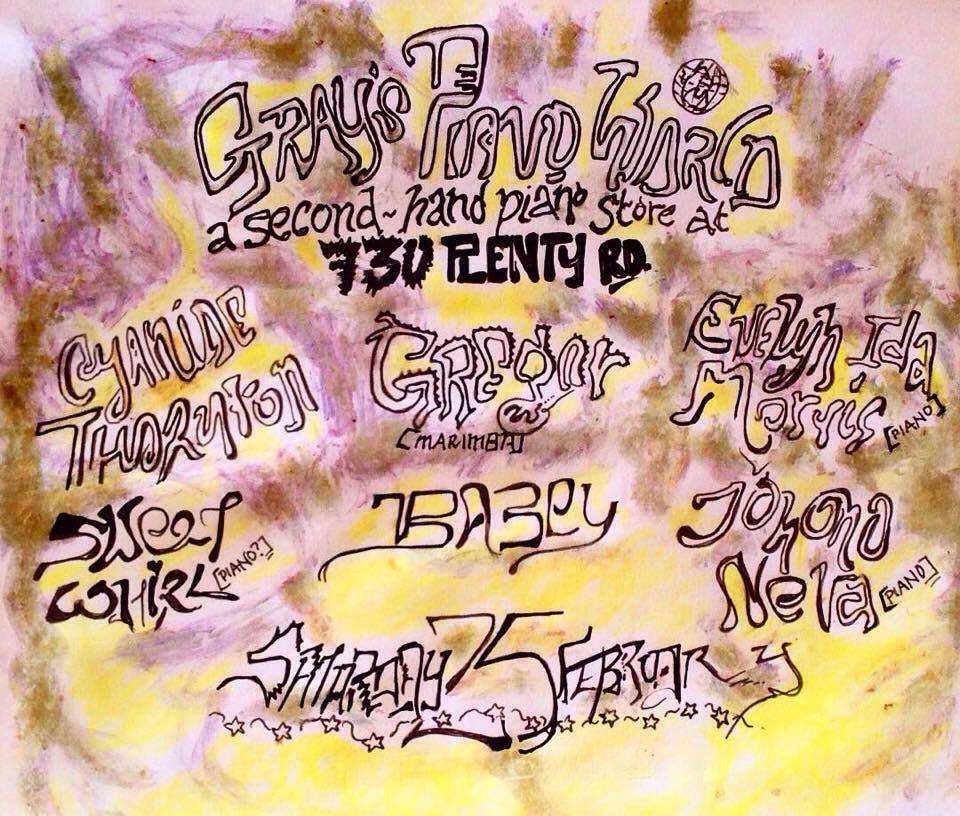 GRAY'S PIANO WORLD
a second-hand piano store at
730 PLENTY RD.
CYANIDE
THORNTON
GREGOR
[MARIMBA]
Evelyn Ida
Morris
[PIANO]
SWEET
WHIRL
[PIANO?]
BABEY
[PIANO]
SATURDAY 25 FEBRUARY